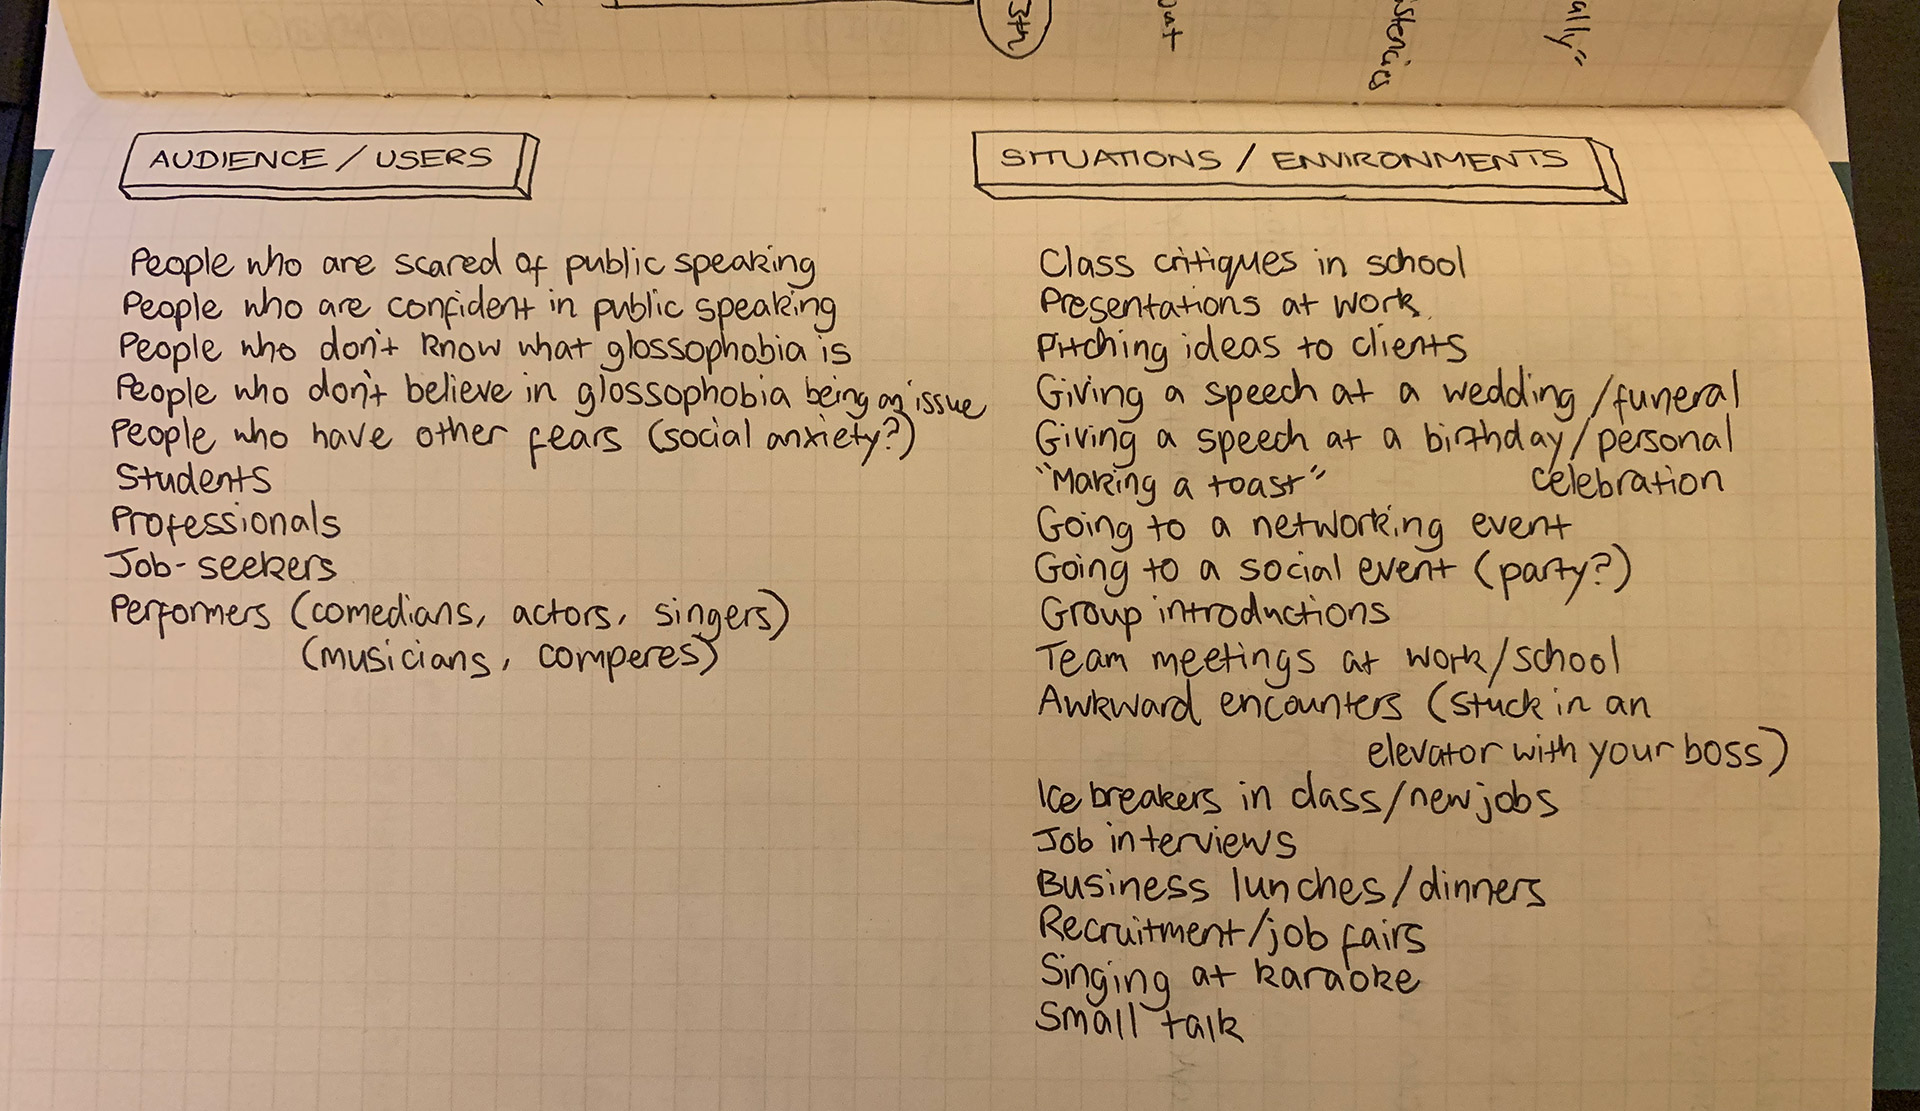 AUDIENCE / USERS
People who are scared of public speaking
People who are confident in public speaking
People who don't know what glossophobia is
People who don't believe in glossophobia being an issue
People who have other fears (social anxiety?)
Students
Professionals
Job-seekers
Performers (comedians, actors, singers)
(musicians, comperes)
SITUATIONS / ENVIRONMENTS
Class critiques in school
Presentations at work
Pitching ideas to clients
Giving a speech at a wedding/funeral
Giving a speech at a birthday/personal
celebration
"Making a toast"
Going to a networking event
Going to a social event (party?)
Group introductions
Team meetings at work/school
Awkward encounters (stuck in an
elevator with your boss)
Ice breakers in class/new jobs
Job interviews
Business lunches/dinners
Recruitment/job fairs
Singing at karaoke
Small talk